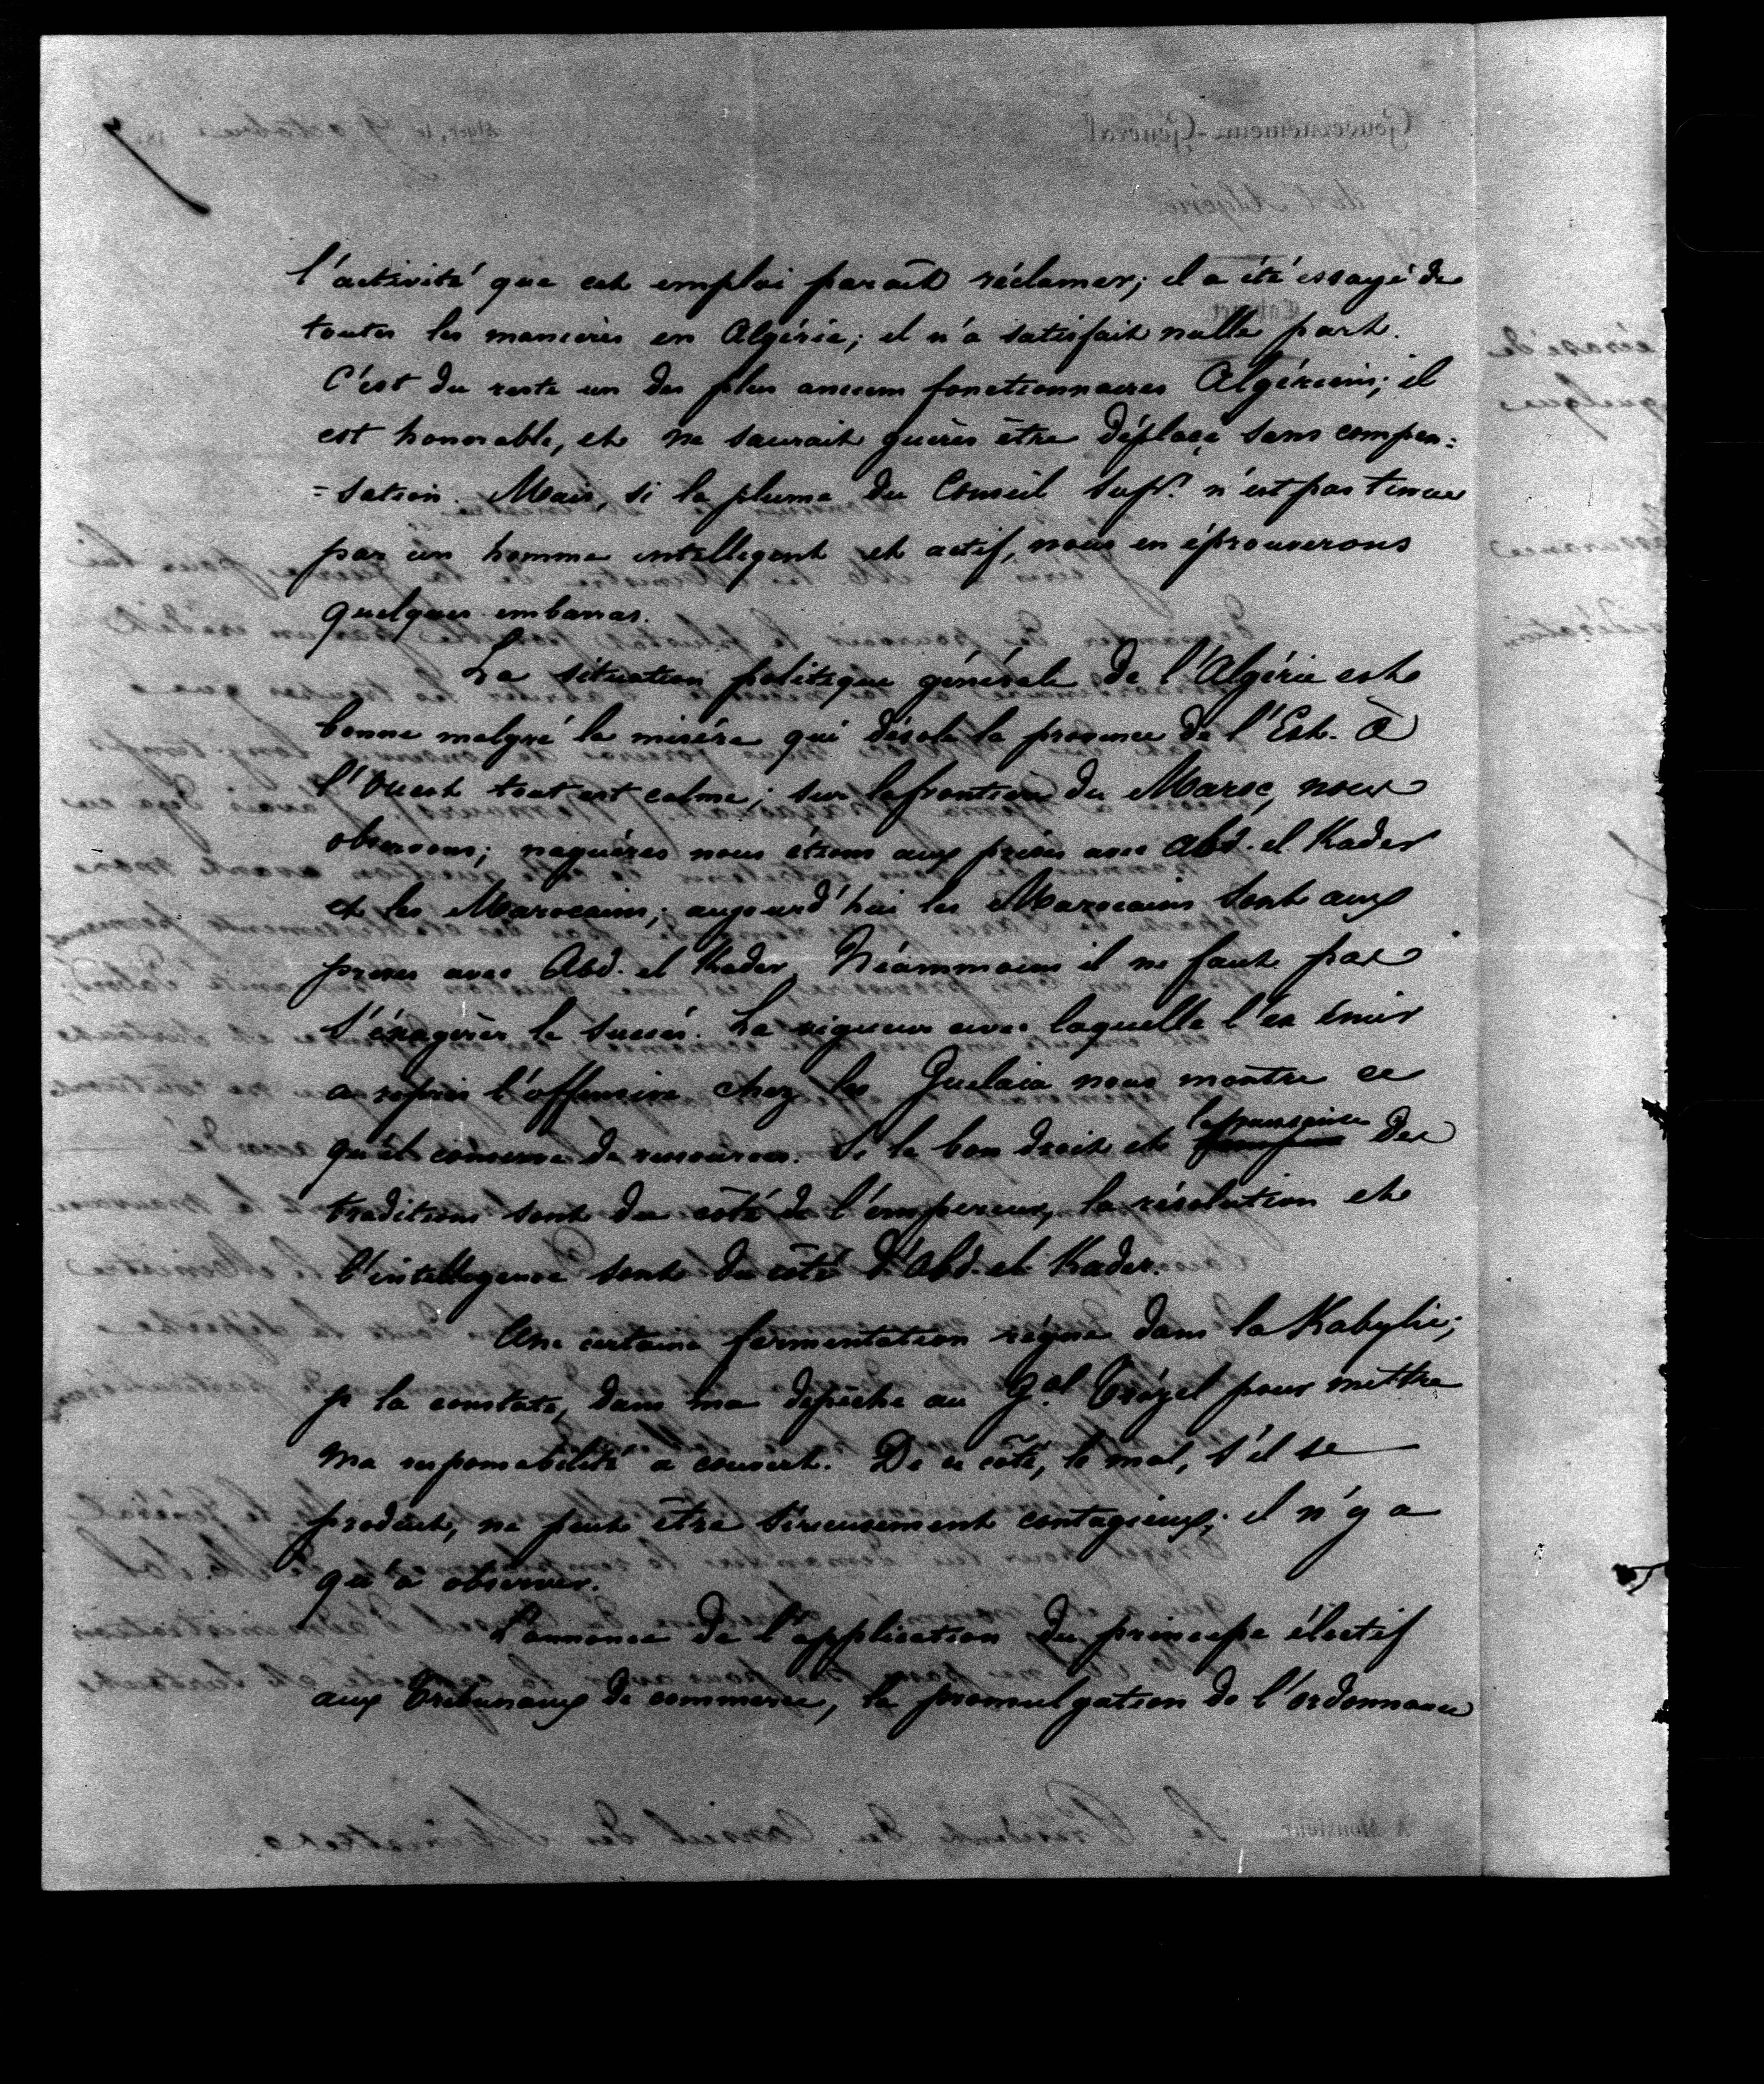 l'activité que cet emploi paraît réclamer; il a été essayé de
toutes les manières en Algérie; il n'a satisfait nulle part.
C'est du reste un des plus anciens fonctionnaires Algériens; il
est honorable, et ne saurait guères être déplacé sans compen=
=sation. Mais, si la plume du Conseil Supr. n'est pas tenue
par un homme intelligent et actif, nous en éprouverons
quelques embarras.
La situation politique générale de l'Algérie est
bonne malgré la misère qui désole la province de l'Est. à
l'Ouest tout est calme; sur la frontière du Maroc, nous
observons; naguères nous étions aux prises avec Abd-el Kader
et les Marocains; aujourd'hui les Marocains sont aux
prises avec Abd-el Kader. Néammoins il ne faut pas
s'éxagérer le succès. La vigueur avec laquelle l'ex émir
a repris l'offensive chez les Guelaia nous montre ce
qu'il conserve de ressources. Si le bon droit et la puissance des
traditions sont du côté de l'émpereur, la résolution et
l'intelligence sont du côté d'Abd-el Kader.
Une certaine fermentation règne dans la Kabylie;
je la constate, dans ma dépêche au Gal. Trézel pour mettre
ma responsabilité à couvert. De ce côté, le mal, s'il se
produit, ne peut être sérieusement contagieux; il n'y a
qu'à observer.
L'annonce de l'application du principe électif
aux Tribunaux de commerce, la promulgation de l'ordonnance